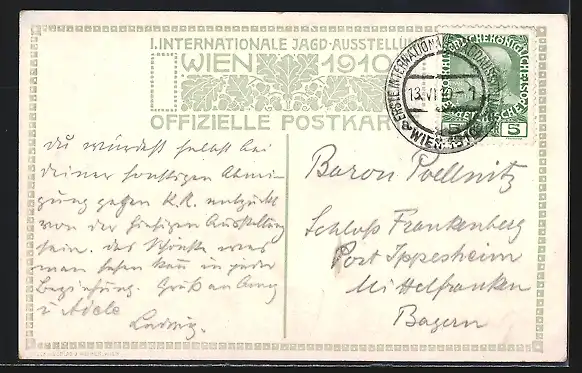 I. INTERNATIONALE JAGD-AUSSTELLUNG
WIEN 1910
OFFIZIELLE POSTKARTE
ERSTE INTERNATIONALE JAGDAUSSTELLUNG
13.VI.10-1
WIEN 1910
5 5
Du würdest selbst bei
deiner sonstigen Abnei-
gung gegen K.K. entzückt
von der hiesigen Ausstellung
sein. Das Schönste was
man sehen kann in jeder
Beziehung. Gruß an Amy
u Adele
Ludwig.
Baron Poellnitz
Schloss Frankenberg
Post Ippesheim
Mittelfranken
Bayern